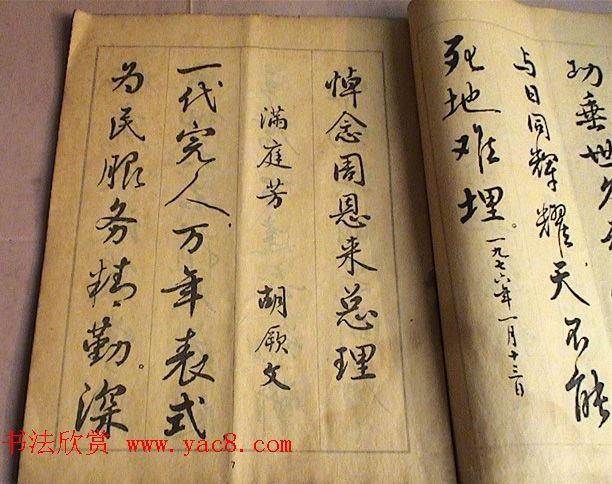 功垂世
与日同辉耀天不能
死地难埋。一九七六年一月十三日
悼念周恩来总理
满庭芳 胡厥文
一代完人万年表式
为民服务精勤。深
7
书法欣赏 www.yac8.com